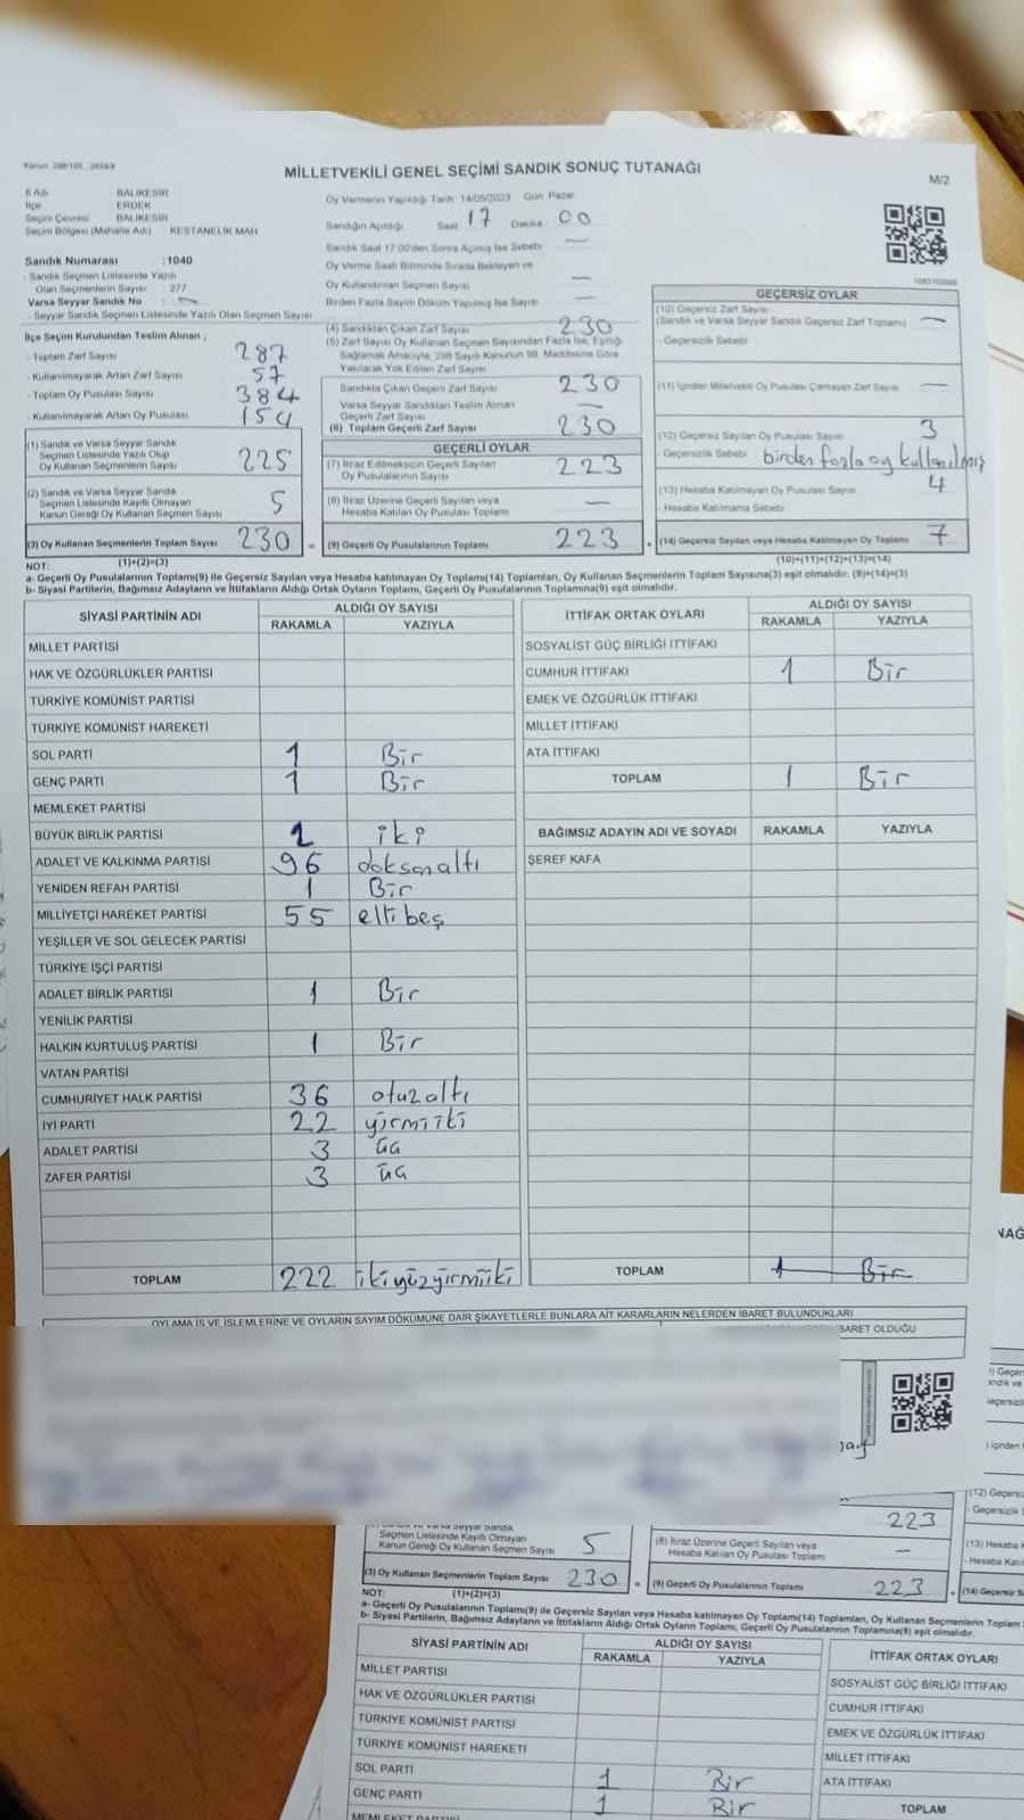 MİLLETVEKİLİ GENEL SEÇİMİ SANDIK SONUÇ TUTANAĞI
M/2
İl Adı BALIKESİR
İlçe ERDEK
Seçim Çevresi BALIKESİR
Seçim Bölgesi (Mahalle Adı) KESTANELİK MAH.
Oy Vermenin Yapıldığı Tarih 14/05/2023 Gün Pazar
Sandığın Açıldığı Saat 17 Dakika 00
Sandık Saat 17:00'den Sonra Açılmış İse Sebebi —
Oy Verme Saati Bitiminde Sırada Bekleyen ve
Oy Kullandırılan Seçmen Sayısı —
Birden Fazla Sayım Döküm Yapılmış İse Sayısı —
Sandık Numarası :1040
Sandık Seçmen Listesinde Yazılı
Olan Seçmenlerin Sayısı 277
Varsa Seyyar Sandık No : —
Seyyar Sandık Seçmen Listesinde Yazılı Olan Seçmen Sayısı
İlçe Seçim Kurulundan Teslim Alınan ;
Toplam Zarf Sayısı 287
Kullanılmayarak Artan Zarf Sayısı 57
Toplam Oy Pusulası 384
Kullanılmayarak Artan Oy Pusulası 154
(1) Sandık ve Varsa Seyyar Sandık
Seçmen Listesinde Yazılı Olup
Oy Kullanan Seçmenlerin Sayısı 225
(2) Sandık ve Varsa Seyyar Sandık
Seçmen Listesinde Kayıtlı Olmayan
Kanun Gereği Oy Kullanan Seçmen Sayısı 5
(3) Oy Kullanan Seçmenlerin Toplam Sayısı 230
(1)+(2)=(3)
(4) Sandıktan Çıkan Zarf Sayısı 230
(5) Zarf Sayısı Oy Kullanan Seçmen Sayısından Fazla İse, Eşitliği
Sağlamak Amacıyla, 298 Sayılı Kanunun 98. Maddesine Göre
Yakılarak Yok Edilen Zarf Sayısı
Sandıkta Çıkan Geçerli Zarf Sayısı 230
Varsa Seyyar Sandıktan Teslim Alınan
Geçerli Zarf Sayısı —
(6) Toplam Geçerli Zarf Sayısı 230
GEÇERLİ OYLAR
(7) İtiraz Edilmeksizin Geçerli Sayılan
Oy Pusulalarının Sayısı 223
(8) İtiraz Üzerine Geçerli Sayılan veya
Hesaba Katılan Oy Pusulası Toplamı —
(9) Geçerli Oy Pusulalarının Toplamı 223
GEÇERSİZ OYLAR
(10) Geçersiz Zarf Sayısı
(Sandık ve Varsa Seyyar Sandık Geçersiz Zarf Toplamı) —
Geçersizlik Sebebi
(11) İçinden Milletvekili Oy Pusulası Çıkmayan Zarf Sayısı —
(12) Geçersiz Sayılan Oy Pusulası Sayısı 3
Geçersizlik Sebebi birden fazla oy kullanılmış
(13) Hesaba Katılmayan Oy Pusulası Sayısı 4
Hesaba Katılmama Sebebi
(14) Geçersiz Sayılan veya Hesaba Katılmayan Oy Toplamı 7
(10)+(11)+(12)+(13)=(14)
NOT:
a- Geçerli Oy Pusulalarının Toplamı(9) ile Geçersiz Sayılan veya Hesaba katılmayan Oy Toplamı(14) Toplamları, Oy Kullanan Seçmenlerin Toplam Sayısına(3) eşit olmalıdır. (9)+(14)=(3)
b- Siyasi Partilerin, Bağımsız Adayların ve İttifakların Aldığı Ortak Oyların Toplamı, Geçerli Oy Pusulalarının Toplamına(9) eşit olmalıdır.
SİYASİ PARTİNİN ADI ALDIĞI OY SAYISI
RAKAMLA YAZIYLA
MİLLET PARTİSİ
HAK VE ÖZGÜRLÜKLER PARTİSİ
TÜRKİYE KOMÜNİST PARTİSİ
TÜRKİYE KOMÜNİST HAREKETİ
SOL PARTİ 1 Bir
GENÇ PARTİ 1 Bir
MEMLEKET PARTİSİ
BÜYÜK BİRLİK PARTİSİ 2 iki
ADALET VE KALKINMA PARTİSİ 96 doksanaltı
YENİDEN REFAH PARTİSİ 1 Bir
MİLLİYETÇİ HAREKET PARTİSİ 55 elli beş
YEŞİLLER VE SOL GELECEK PARTİSİ
TÜRKİYE İŞÇİ PARTİSİ
ADALET BİRLİK PARTİSİ 1 Bir
YENİLİK PARTİSİ
HALKIN KURTULUŞ PARTİSİ 1 Bir
VATAN PARTİSİ
CUMHURİYET HALK PARTİSİ 36 otuzaltı
İYİ PARTİ 22 yirmiiki
ADALET PARTİSİ 3 üç
ZAFER PARTİSİ 3 üç
TOPLAM 222 ikiyüzyirmiiki
İTTİFAK ORTAK OYLARI ALDIĞI OY SAYISI
RAKAMLA YAZIYLA
SOSYALİST GÜÇ BİRLİĞİ İTTİFAKI
CUMHUR İTTİFAKI 1 Bir
EMEK VE ÖZGÜRLÜK İTTİFAKI
MİLLET İTTİFAKI
ATA İTTİFAKI
TOPLAM 1 Bir
BAĞIMSIZ ADAYIN ADI VE SOYADI RAKAMLA YAZIYLA
ŞEREF KAFA
TOPLAM 1 Bir
OYLAMA İŞ VE İŞLEMLERİNE VE OYLARIN SAYIM DÖKÜMÜNE DAİR ŞİKAYETLERLE BUNLARA AİT KARARLARIN NELERDEN İBARET BULUNDUKLARI
BARET OLDUĞU
223
Seçmen Listesinde Kayıtlı Olmayan
Kanun Gereği Oy Kullanan Seçmen Sayısı 5
(8) İtiraz Üzerine Geçerli Sayılan veya
Hesaba Katılan Oy Pusulası Toplamı —
(3) Oy Kullanan Seçmenlerin Toplam Sayısı 230
(9) Geçerli Oy Pusulalarının Toplamı 223
(14) Geçersiz S
NOT: (1)+(2)=(3)
a- Geçerli Oy Pusulalarının Toplamı(9) ile Geçersiz Sayılan veya Hesaba katılmayan Oy Toplamı(14) Toplamları, Oy Kullanan Seçmenlerin Toplam
b- Siyasi Partilerin, Bağımsız Adayların ve İttifakların Aldığı Ortak Oyların Toplamı, Geçerli Oy Pusulalarının Toplamına(9) eşit olmalıdır.
SİYASİ PARTİNİN ADI ALDIĞI OY SAYISI
RAKAMLA YAZIYLA
MİLLET PARTİSİ
HAK VE ÖZGÜRLÜKLER PARTİSİ
TÜRKİYE KOMÜNİST PARTİSİ
TÜRKİYE KOMÜNİST HAREKETİ
SOL PARTİ 1 Bir
GENÇ PARTİ 1 Bir
İTTİFAK ORTAK OYLARI
SOSYALİST GÜÇ BİRLİĞİ İTTİFAKI
CUMHUR İTTİFAKI
EMEK VE ÖZGÜRLÜK İTTİFAKI
MİLLET İTTİFAKI
ATA İTTİFAKI
TOPLAM